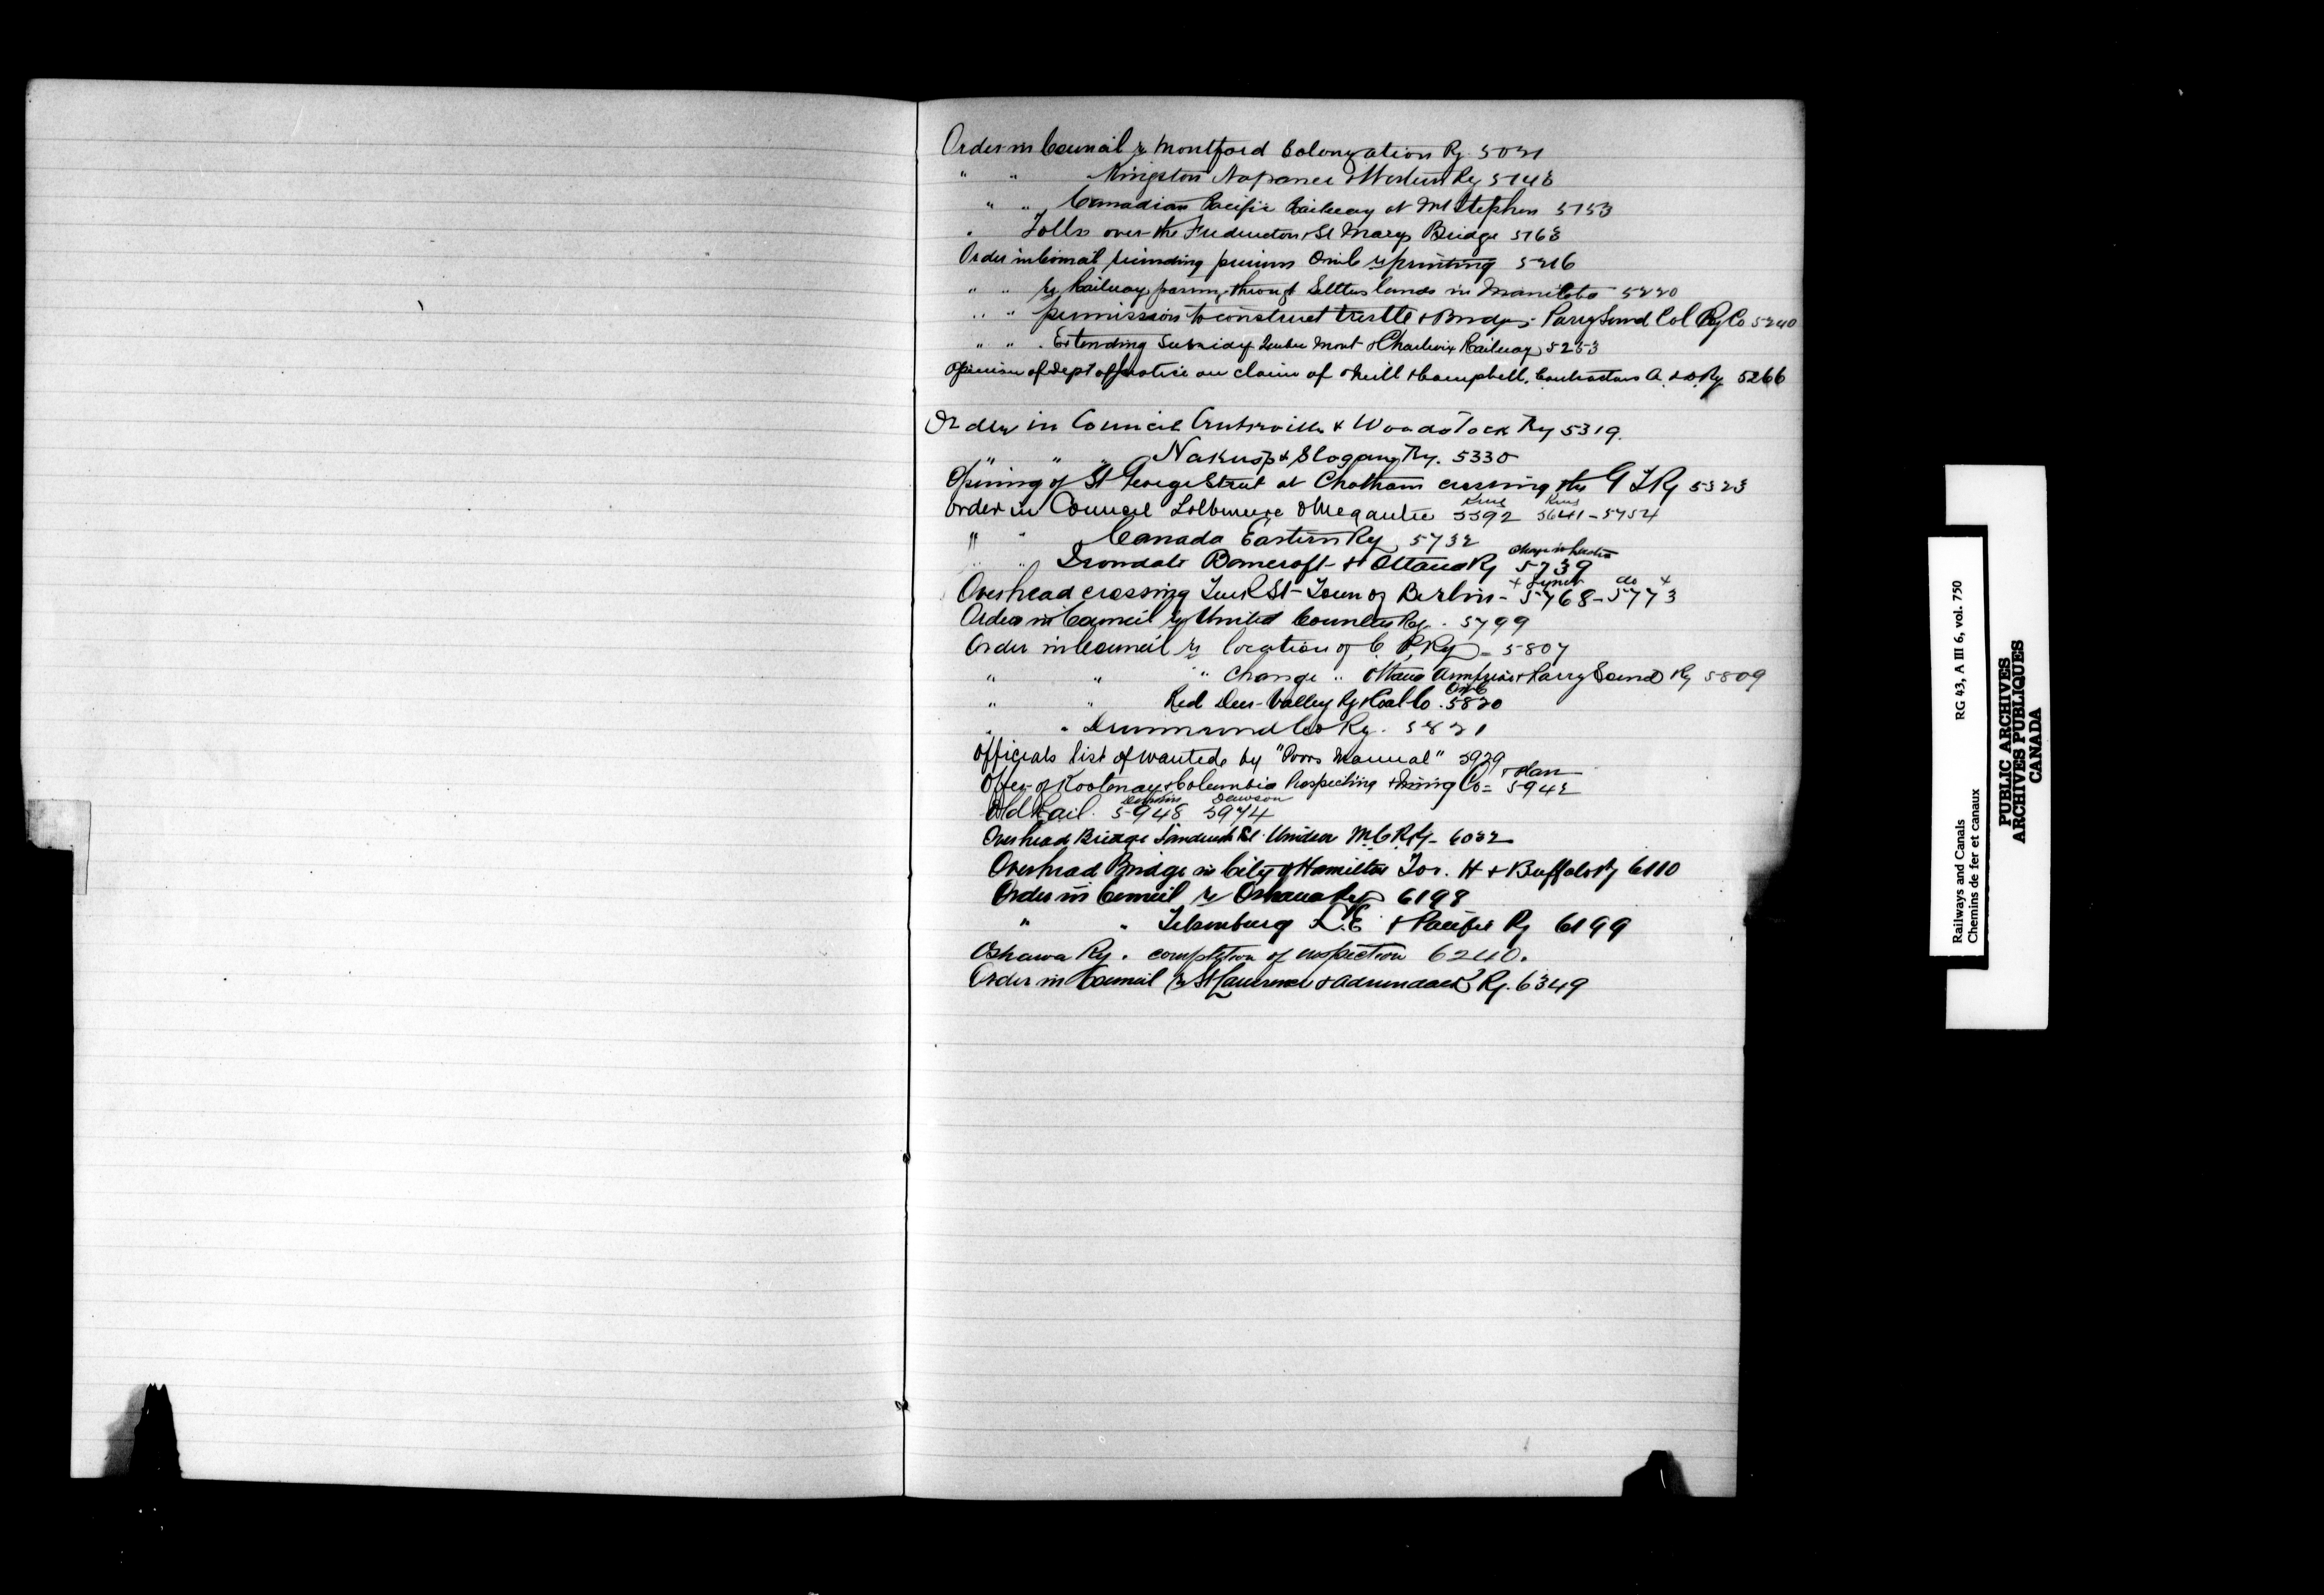 Order in Council re Montford Colonization Ry 5021
" " Kingston Napanee & Western Ry 5148
" " Canadian Pacific Railway at Mt Stephen 5153
" Tolls over the Fredericton & St Marys Bridge 5163
Order in Council rescinding previous OinC re printing 5216
" " re Railways passing through Settlers lands in Manitoba 5220
" " permission to construct trestle & Bridge - Parry Sound Col Ry Co 5240
" " Extending Subsidy Quebec Mont & Charlevoix Railway 5253
Opinion of Dept of Justice on claim of Neill & Campbell, Contractors A. & Ry 5266
Order in Council & Woodstock Ry 5319.
" " " Nakusp & Slogan Ry. 5330
Opening of St George Street at Chatham crossing the G T Ry 5323
Order in Council Lotbiniere & Megantic 5592 5641 - 5754
" " Canada Eastern Ry 5732
" " Irondale Bancroft & Ottawa Ry 5739
Overhead crossing St - Town of Berlin - 5768 - 5773
+ do +
Order in Council re United Counties Ry - 5799
Order in Council re location of C. P. Ry - 5807
" " " change " Ottawa Arnprior & Parry Sound Ry 5809
" " Red Deer Valley Ry & Coal Co. 5820
OinC
" " Drummond Co Ry. 5821
Officials list of wanted by "Poors Manual" 5929
Offer of Kootenay & Columbia Prospecting & Mining Co = 5942
Old Rail. 5948 5974
Dawson
Overhead Bridge Sandwich St Windsor M.C.R.Ry - 6032
Overhead Bridge in City of Hamilton Tor. H & Buffalo Ry 6110
Order in Council re Oshawa Ry 6198
" " Tilsonburg L.E & Pacific Ry 6199
Oshawa Ry. completion of inspection 6240.
Order in Council re St Lawrence & Adirondack Ry. 6349
Railways and Canals RG 43, A III 6, vol. 750
Chemins de fer et canaux
PUBLIC ARCHIVES
ARCHIVES PUBLIQUES
CANADA